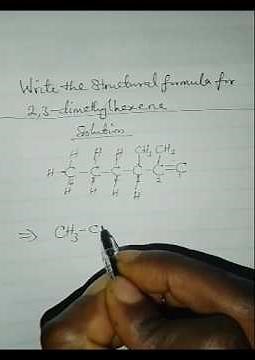 Write the Structural formula for
2,3-dimethylhexene
Solution
H H H CH3 CH3
H-C-C-C-C-C=C
6 5 4 3 2 1
H H H H
⇒ CH3-C